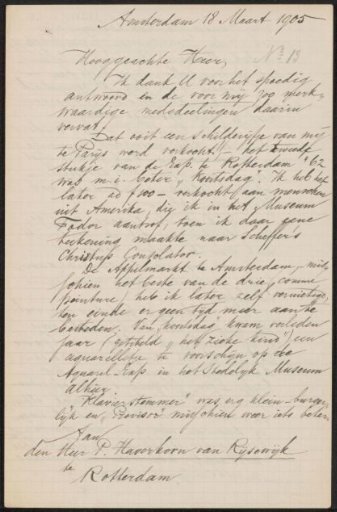 Amsterdam 18 Maart 1905
Hooggeachte Heer,
No 13
Ik dank U voor het spoedig
antwoord en de voor mij zoo merk-
waardige mededeelingen daarin
vervat.
Dat ooit een schilderijtje van mij
te Parijs werd verkocht! - het tweede
stukje van de Exp. te Rotterdam '62
was m.i. beter, "Kerstdag". Ik heb het
later ad f 100 - verkocht aan menschen
uit Amerika, die ik in het Museum
Fodor aantrof, toen ik daar eene
teekening maakte naar Scheffer's
Christus Consolator.
De Appelmarkt te Amsterdam, mis-
schien het beste van de drie, comme
peinture, heb ik later zelf vernietigd,
ten einde er geen tijd meer aan te
besteden. Van kerstdag kwam verleden
jaar (getiteld "het zieke kind") een
aquarelletje te voorschijn op de
Aquarel-Exp. in het Stedelijk Museum
alhier.
"Klavierstemmer" was erg klein-burger-
lijk en, "Provisor" misschien weer iets beter.
Aan
den Heer P. Haverkorn van Rijsewijk
te
Rotterdam